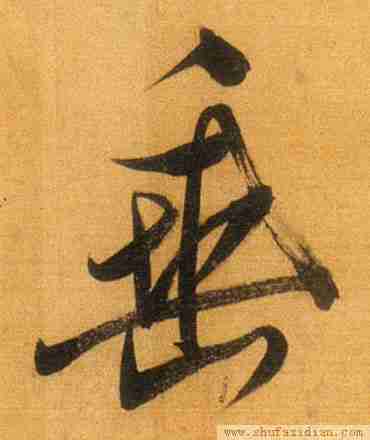 垂
www.shufazidian.com